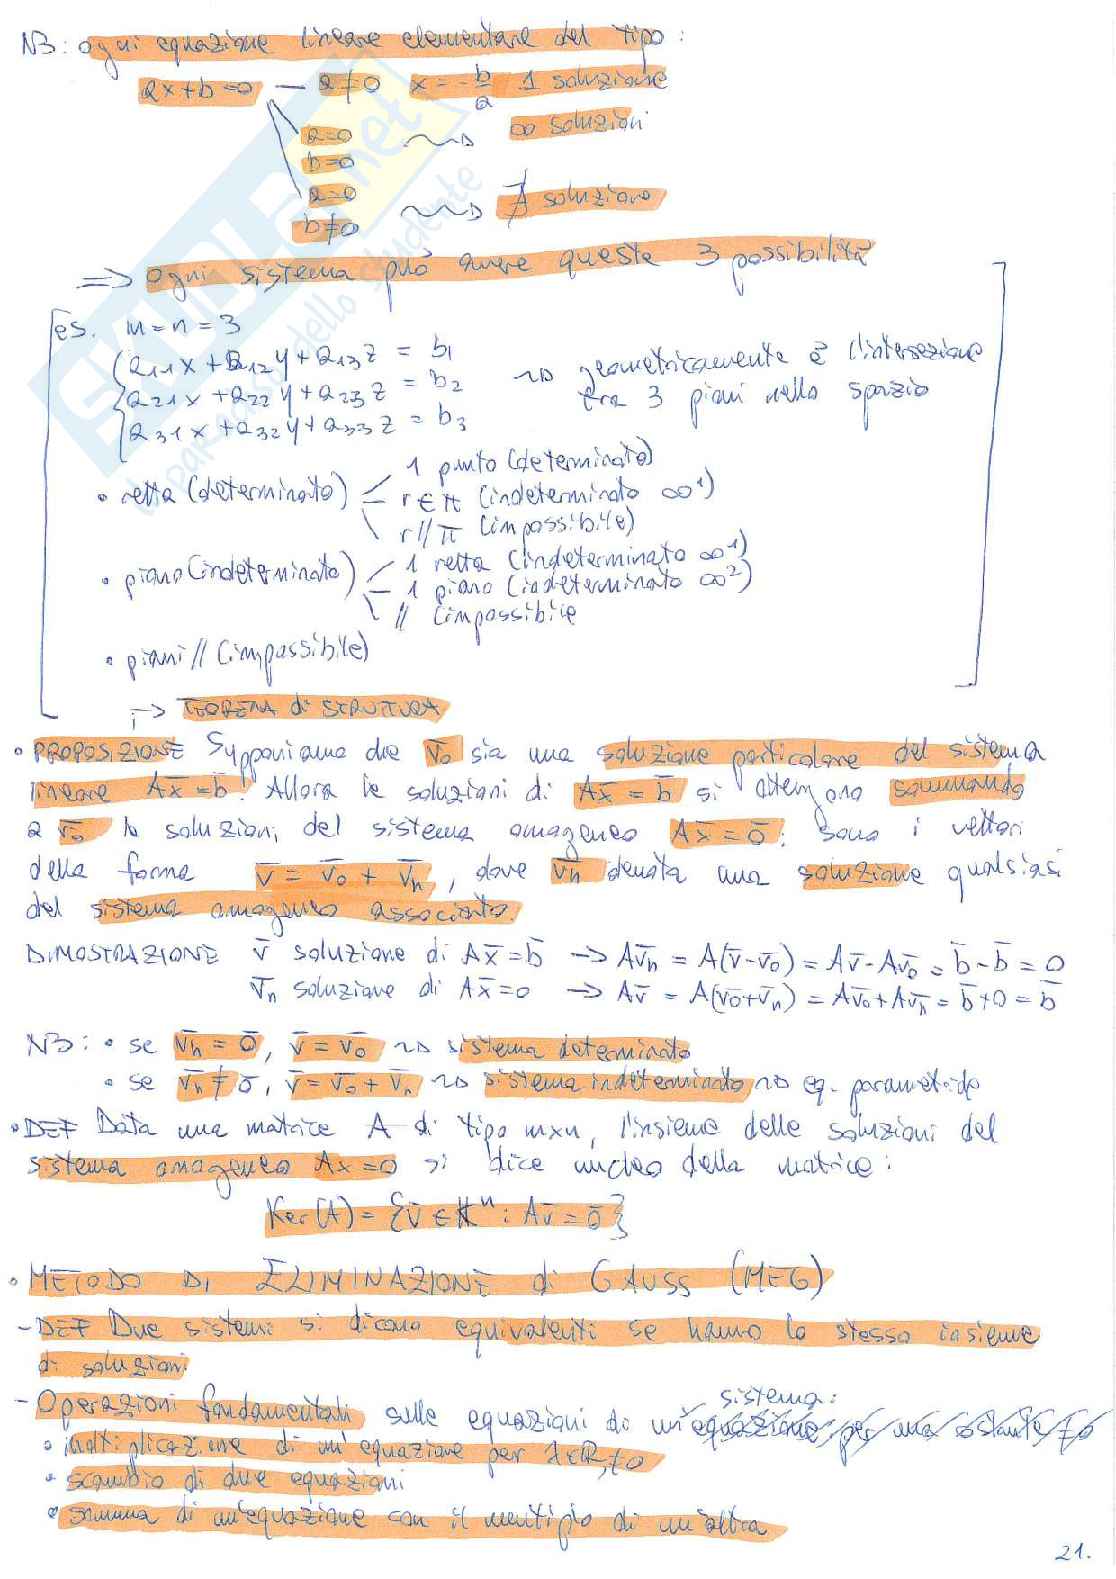 NB: ogni equazione lineare elementare del tipo:
ax+b=0 — a≠0 x=-b/a 1 soluzione
a=0 ∞ soluzioni
b=0
a=0 ∄ soluzione
b≠0
=> ogni sistema può avere queste 3 possibilità
es. m=n=3
a11x+a12y+a13z = b1
a21x+a22y+a23z = b2 geometricamente è l'intersezione
a31x+a32y+a33z = b3 tra 3 piani nello spazio
• retta (determinato) 1 punto (determinato)
r∈π (indeterminato ∞1)
r//π (impossibile)
• piano (indeterminato) 1 retta (indeterminato ∞1)
1 piano (indeterminato ∞2)
// (impossibile
• piani // (impossibile)
→ TEOREMA di STRUTTURA
• PROPOSIZIONE Supponiamo che v̄0 sia una soluzione particolare del sistema
lineare Ax̄=b̄. Allora le soluzioni di Ax̄=b̄ si ottengono sommando
a v̄0 le soluzioni del sistema omogeneo Ax̄=ō: sono i vettori
della forma v̄ = v̄0 + v̄h, dove v̄h denota una soluzione qualsiasi
del sistema omogeneo associato.
DIMOSTRAZIONE v̄ soluzione di Ax̄=b̄ → Av̄h = A(v̄-v̄0) = Av̄-Av̄0 = b̄-b̄ = 0
v̄h soluzione di Ax̄=0 → Av̄ = A(v̄0+v̄h) = Av̄0+Av̄h = b̄+0 = b̄
NB: • se v̄h = ō, v̄=v̄0 sistema determinato
• se v̄h ≠ ō, v̄=v̄0+v̄h sistema indeterminato eq. parametiche
• DEF Data una matrice A di tipo mxn, l'insieme delle soluzioni del
sistema omogeneo Ax=0 si dice nucleo della matrice:
Ker(A) = {v̄∈Kn : Av̄=ō}
• METODO DI ELIMINAZIONE di GAUSS (MEG)
- DEF Due sistemi si dicono equivalenti se hanno lo stesso insieme
di soluzioni
- Operazioni fondamentali sulle equazioni di un'equazione per una costante ≠0 sistema:
• moltiplicazione di un'equazione per λ∈R,≠0
• scambio di due equazioni
• somma di un'equazione con il multiplo di un'altra
21.
SKUOLA.net
il paradiso dello studente